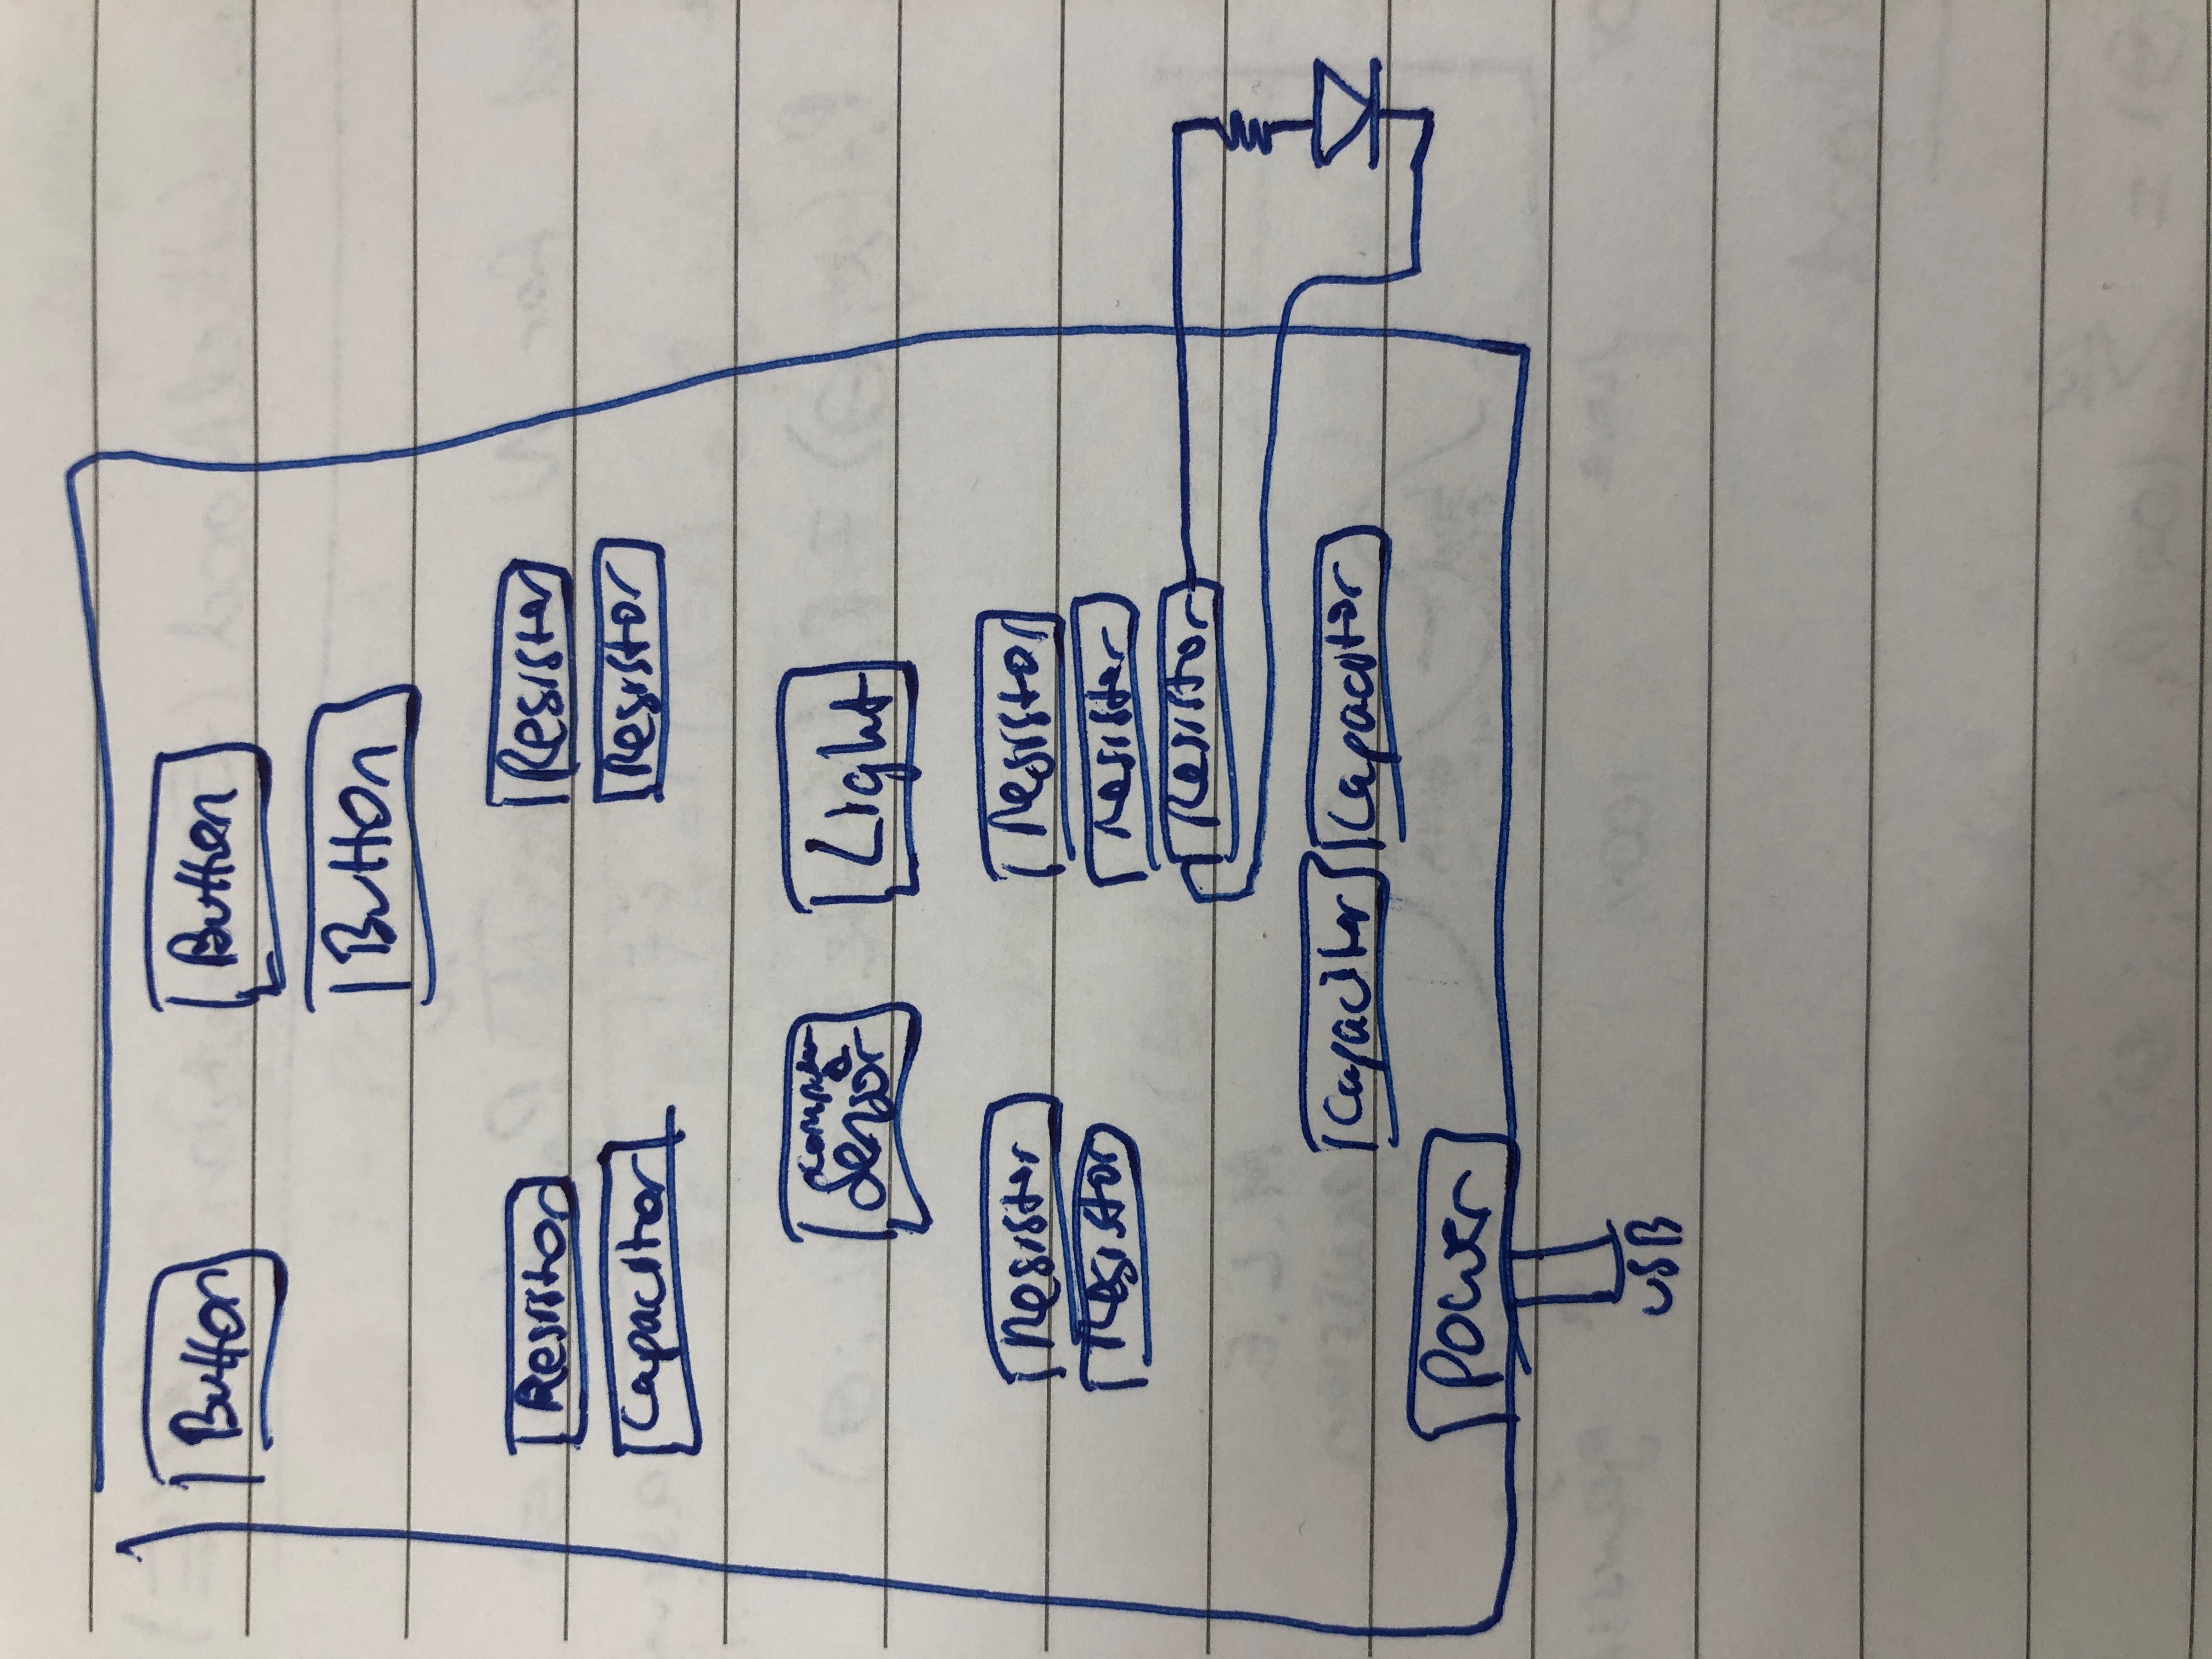 Button Button
Button
Resistor Resistor
Capacitor Resistor
computer
& Sensor Light
Resistor Resistor
Resistor Resistor
Resistor
Capacitor Capacitor
Power
USB